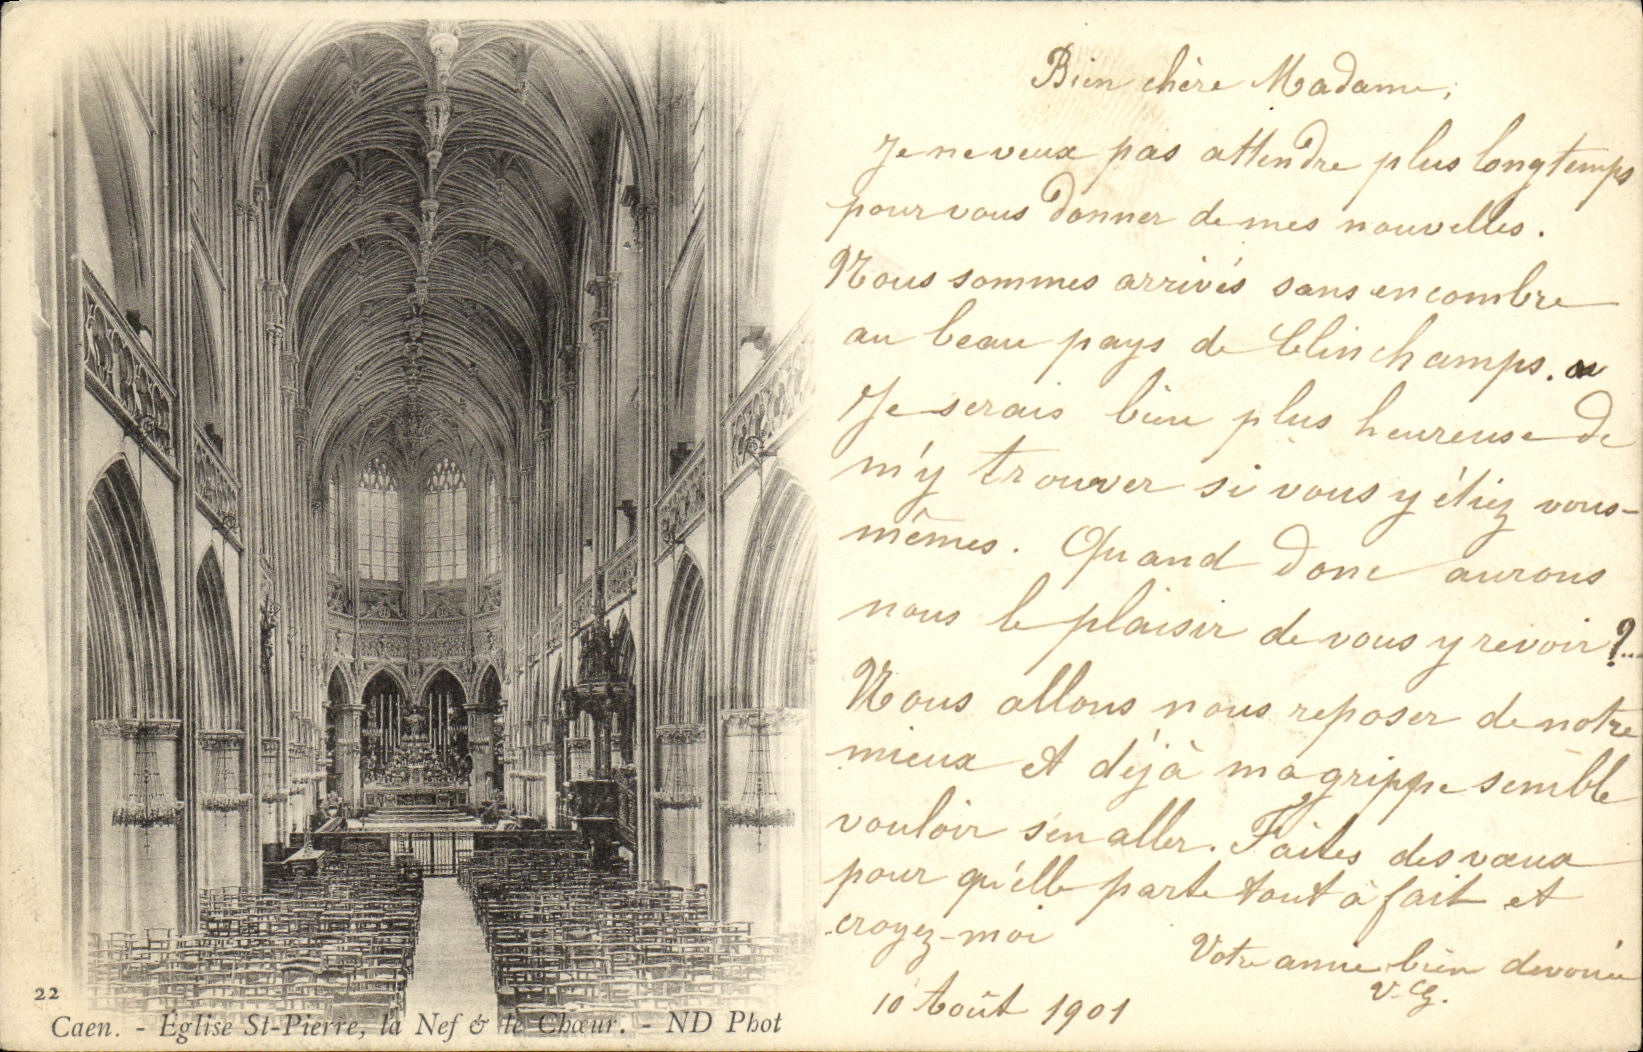 Bien chère Madame,
Je ne veux pas attendre plus longtemps
pour vous donner de mes nouvelles.
Nous sommes arrivés sans encombre
au beau pays de Clinchamps.
Je serais bien plus heureuse de
m'y trouver si vous y étiez vous-
mêmes. Quand donc aurons
nous le plaisir de vous y revoir ?...
Nous allons nous reposer de notre
mieux et déjà ma grippe semble
vouloir s'en aller. Faites des vœux
pour qu'elle parte tout à fait et
croyez-moi
Votre amie bien dévouée
V. G.
10 Août 1901
22
Caen. - Église St-Pierre, la Nef & le Chœur. - ND Phot